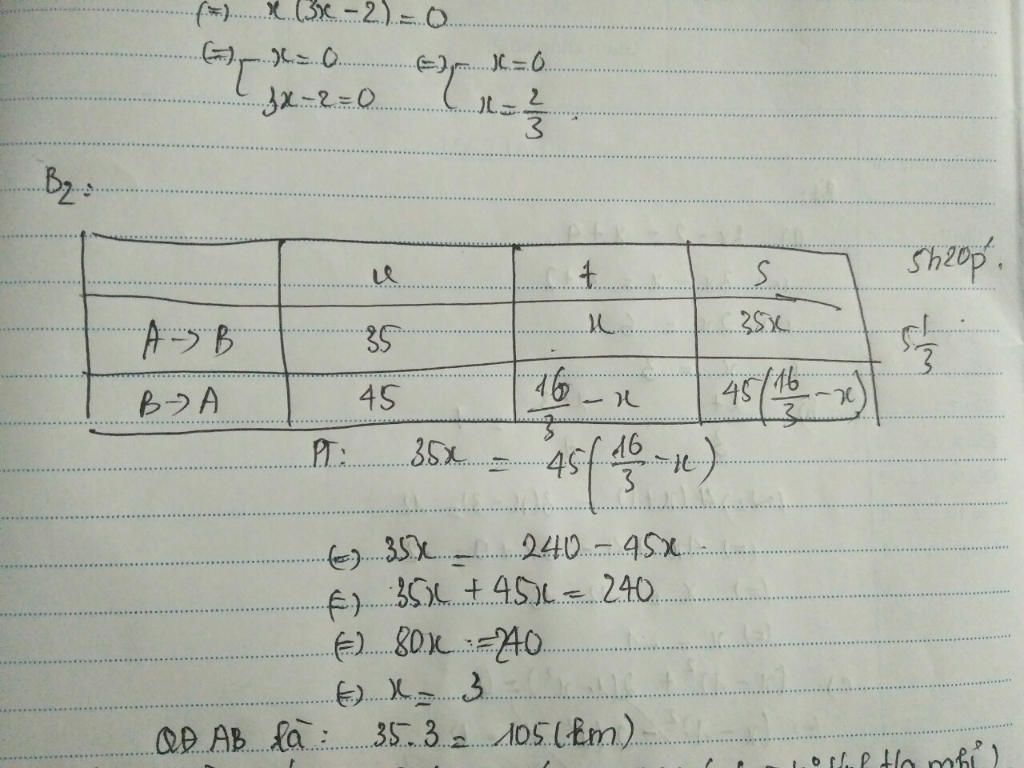 (=) x(3x-2)=0
(=) [ x=0 (=) [ x=0
3x-2=0 x=2/3.
B2:
v t S 5h20p'.
A -> B 35 x 35x 5 1/3
B -> A 45 16/3 - x 45(16/3 - x)
PT: 35x = 45(16/3 - x)
(=) 35x = 240 - 45x
(=) 35x + 45x = 240
(=) 80x = 240
(=) x = 3
QĐ AB là: 35.3 = 105 (km)